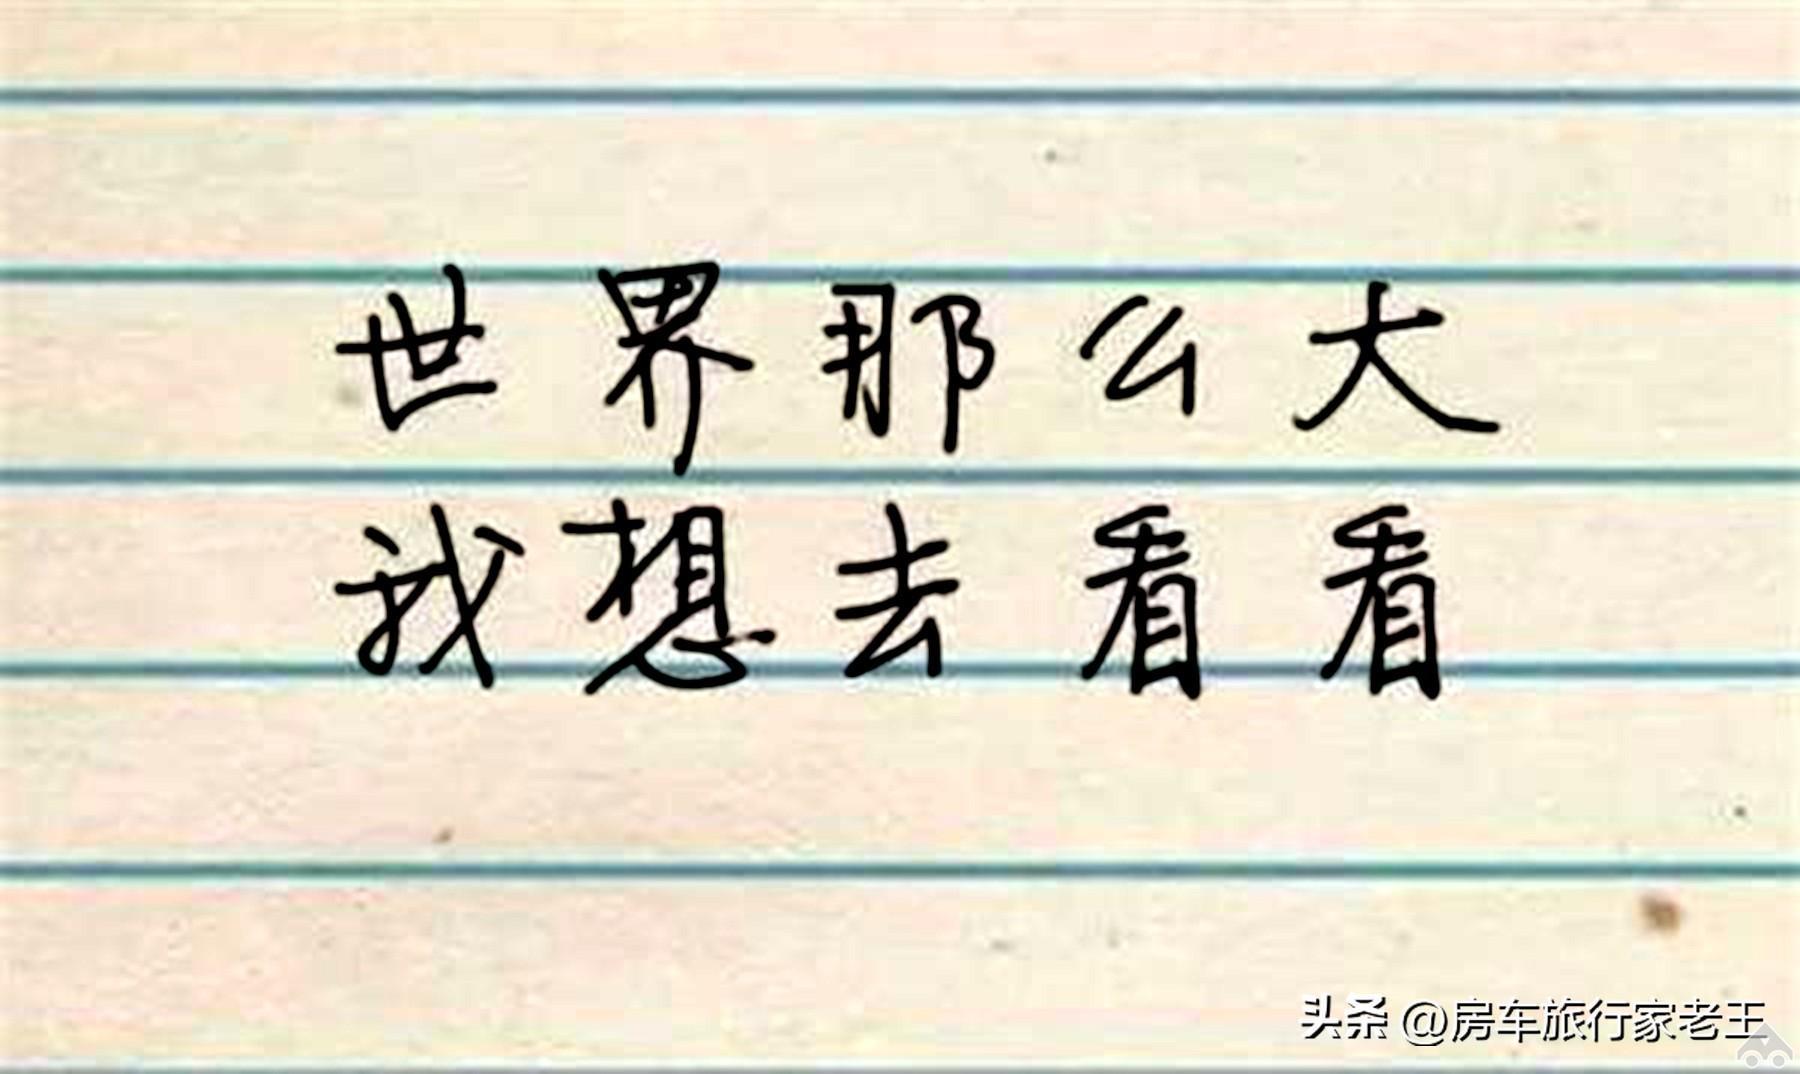 世界那么大
我想去看看
头条 @房车旅行家老王